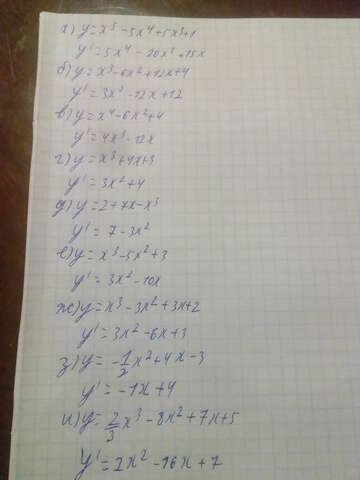 а) y=x⁵-5x⁴+5x³+1
y'=5x⁴-20x³+15x
б) y=x³-6x²+12x+4
y'=3x²-12x+12
в) y=x⁴-6x²+4
y'=4x³-12x
г) y=x³+4x+3
y'=3x²+4
д) y=2+7x-x³
y'=7-3x²
е) y=x³-5x²+3
y'=3x²-10x
ж) y=x³-3x²+3x+2
y'=3x²-6x+3
з) y=-1/2x²+4x-3
y'=-1x+4
и) y=2/3x³-8x²+7x+5
y'=2x²-16x+7